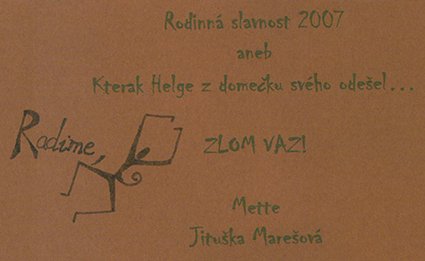 Rodinná slavnost 2007
aneb
Kterak Helge z domečku svého odešel...
Radime,
ZLOM VAZ!
Mette
Jituška Marešová